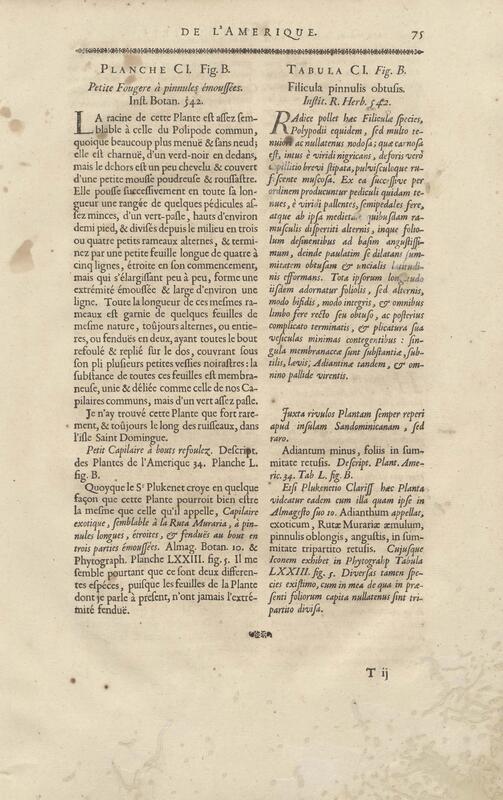 DE L'AMERIQUE. 75
PLANCHE CI. Fig. B.
Petite Fougere à pinnules émoussées.
Inst. Botan. 542.
LA racine de cette Plante est assez sem-
blable à celle du Polipode commun,
quoique beaucoup plus menuë & sans neud;
elle est charnuë, d'un verd-noir en dedans,
mais le dehors est un peu chevelu & couvert
d'une petite mousse poudreuse & roussastre.
Elle pousse successivement en toute sa lon-
gueur une rangée de quelques pédicules as-
sez minces, d'un vert-pasle, hauts d'environ
demi pied, & divisés depuis le milieu en trois
ou quatre petits rameaux alternes, & termi-
nez par une petite feuille longue de quatre à
cinq lignes, étroite en son commencement,
mais qui s'élargissant peu à peu, forme une
extrémité émoussée & large d'environ une
ligne. Toute la longueur de ces mesmes ra-
meaux est garnie de quelques feuilles de
mesme nature, toûjours alternes, ou entie-
res, ou fenduës en deux, ayant toutes le bout
refoulé & replié sur le dos, couvrant sous
son pli plusieurs petites vessies noirastres: la
substance de toutes ces feuilles est membra-
neuse, unie & déliée comme celle de nos Ca-
pilaires communs, mais d'un vert assez pasle.
Je n'ay trouvé cette Plante que fort rare-
ment, & toûjours le long des ruisseaux, dans
l'isle Saint Domingue.
Petit Capilaire à bouts refoulez. Descript.
des Plantes de l'Amerique 34. Planche L.
fig. B.
Quoyque le Sr Plukenet croye en quelque
façon que cette Plante pourroit bien estre
la mesme que celle qu'il appelle, Capilaire
exotique, semblable à la Ruta Muraria, à pin-
nules longues, étroites, & fenduës au bout en
trois parties émoussées. Almag. Botan. 10. &
Phytograph. Planche LXXIII. fig. 5. il me
semble pourtant que ce sont deux differen-
tes espéces, puisque les feuilles de la Plante
dont je parle à présent, n'ont jamais l'extré-
mité fenduë.
TABULA CI. Fig. B.
Filicula pinnulis obtusis.
Instit. R. Herb. 542.
RAdice pollet hæc Filiculæ species,
Polypodii equidem, sed multo te-
nuiori ac nullatenus nodosa; quæ carnosa
est, intus è viridi nigricans, deforis verò
capillitio brevi stipata, pulvisculoque ru-
fescente muscosa. Ex ea successive per
ordinem producuntur pediculi quidam te-
nues, è viridi pallentes, semipedales fere,
atque ab ipsa medietate quibusdam ra-
musculis dispertiti alternis, inque folio-
lum desinentibus ad basim angustissi-
mum, deinde paulatim se dilatans sum-
mitatem obtusam & uncialis latitudi-
nis efformans. Tota ipsorum longitudo
iisdem adornatur foliolis, sed alternis,
modo bifidis, modo integris, & omnibus
limbo fere recto seu obtuso, ac posterius
complicato terminatis, & plicatura sua
vesiculas minimas contegentibus: sin-
gula membranaceæ sunt substantiæ, sub-
tilis, lævis; Adiantinæ tandem, & om-
nino pallide virentis.
Juxta rivulos Plantam semper reperi
apud insulam Sandominicanam, sed
raro.
Adiantum minus, foliis in sum-
mitate retusis. Descript. Plant. Ame-
ric. 34. Tab L. fig. B.
Etsi Plukenetio Clariss hæc Planta
videatur eadem cum illa quam ipse in
Almagesto suo 10. Adianthum appellat,
exoticum, Rutæ Murariæ æmulum,
pinnulis oblongis, angustis, in sum-
mitate tripartito retusis. Cujusque
Iconem exhibet in Phytograhp Tabula
LXXIII. fig. 5. Diversas tamen spe-
cies existimo, cum in mea de qua in præ-
senti foliorum capita nullatenus sint tri-
partito divisa.
T ij